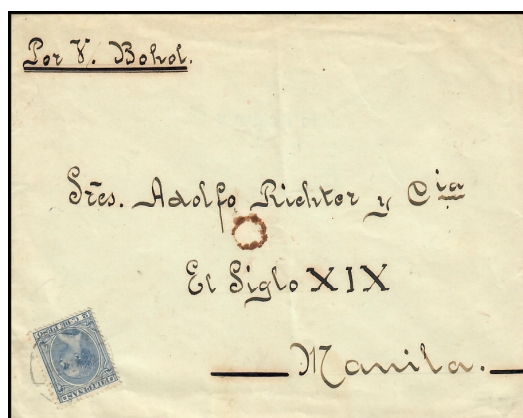 Por V. Bohol.
Sres. Adolfo Richter y Cia
El Siglo XIX
Manila.
FILIPINAS